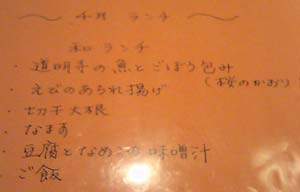 ～ 千翔 ランチ ～
和ランチ
・道明寺の魚とごぼう包み
(桜のかおり)
・えびのあられ揚げ
・切干大根
・なます
・豆腐となめこの味噌汁
ご飯